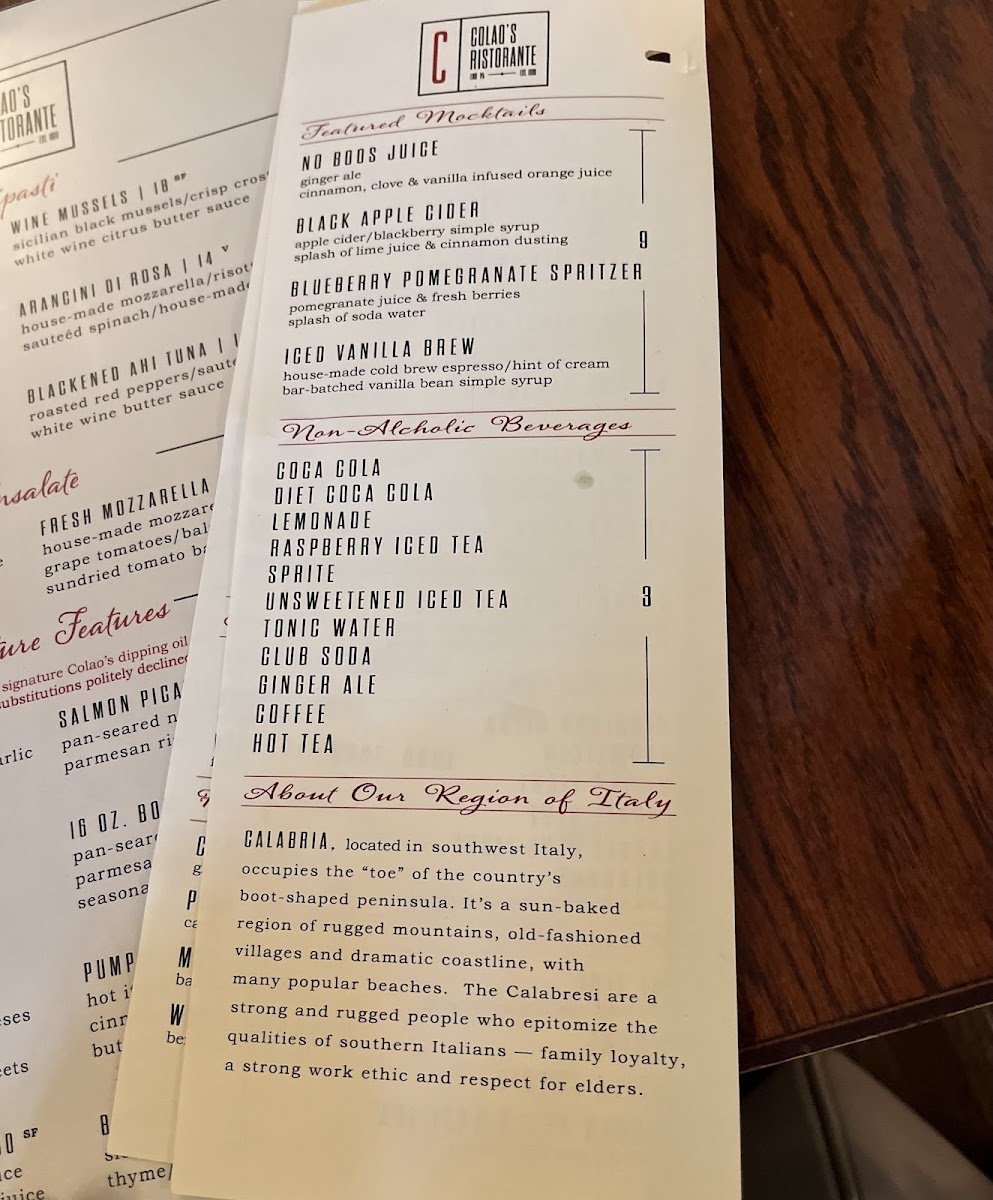 COLAO'S
RISTORANTE
Featured Mocktails
NO BOOS JUICE
ginger ale
cinnamon, clove & vanilla infused orange juice
BLACK APPLE CIDER
apple cider/blackberry simple syrup
splash of lime juice & cinnamon dusting
9
BLUEBERRY POMEGRANATE SPRITZER
pomegranate juice & fresh berries
splash of soda water
ICED VANILLA BREW
house-made cold brew espresso/hint of cream
bar-batched vanilla bean simple syrup
Non-Alcholic Beverages
COCA COLA
DIET COCA COLA
LEMONADE
RASPBERRY ICED TEA
SPRITE
UNSWEETENED ICED TEA
3
TONIC WATER
CLUB SODA
GINGER ALE
COFFEE
HOT TEA
About Our Region of Italy
CALABRIA, located in southwest Italy,
occupies the "toe" of the country's
boot-shaped peninsula. It's a sun-baked
region of rugged mountains, old-fashioned
villages and dramatic coastline, with
many popular beaches. The Calabresi are a
strong and rugged people who epitomize the
qualities of southern Italians — family loyalty,
a strong work ethic and respect for elders.
WINE MUSSELS | 18 SF
sicilian black mussels/crisp
white wine citrus butter sauce
ARANCINI DI ROSA | 14 V
house-made mozzarella/
sauteéd spinach/
BLACKENED AHI TUNA |
roasted red peppers/
white wine butter sauce
FRESH MOZZARELLA
house-made
grape tomatoes/
sundried tomato
Features
signature Colao's dipping oil
substitutions politely declined
SALMON
pan-seared
parmesan
16 OZ.